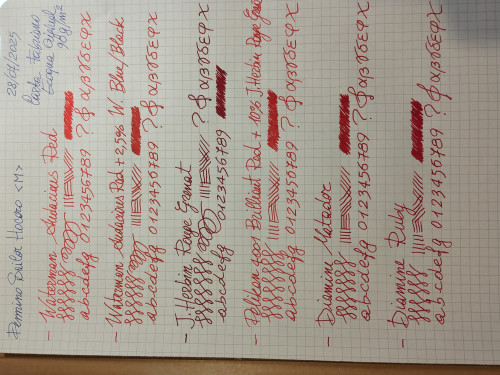 Pennino Sailor Hocoro <M>
28/04/2025
Carta Fabriano
Ecoqua Original
90 g/m²
- Waterman Audacious Red
abcdefg 0123456789 ? & αβγδεφχ
- Waterman Audacious Red + 2,5% W. Blue/Black
abcdefg 0123456789 ? & αβγδεφχ
- J. Herbin Rouge Grenat
abcdefg 0123456789 ? & αβγδεφχ
- Pelikan 4001 Brilliant Red + 10% J. Herbin Rouge Grenat
abcdefg 0123456789 ? & αβγδεφχ
- Diamine Matador
abcdefg 0123456789 ? & αβγδεφχ
- Diamine Ruby
abcdefg 0123456789 ? & αβγδεφχ